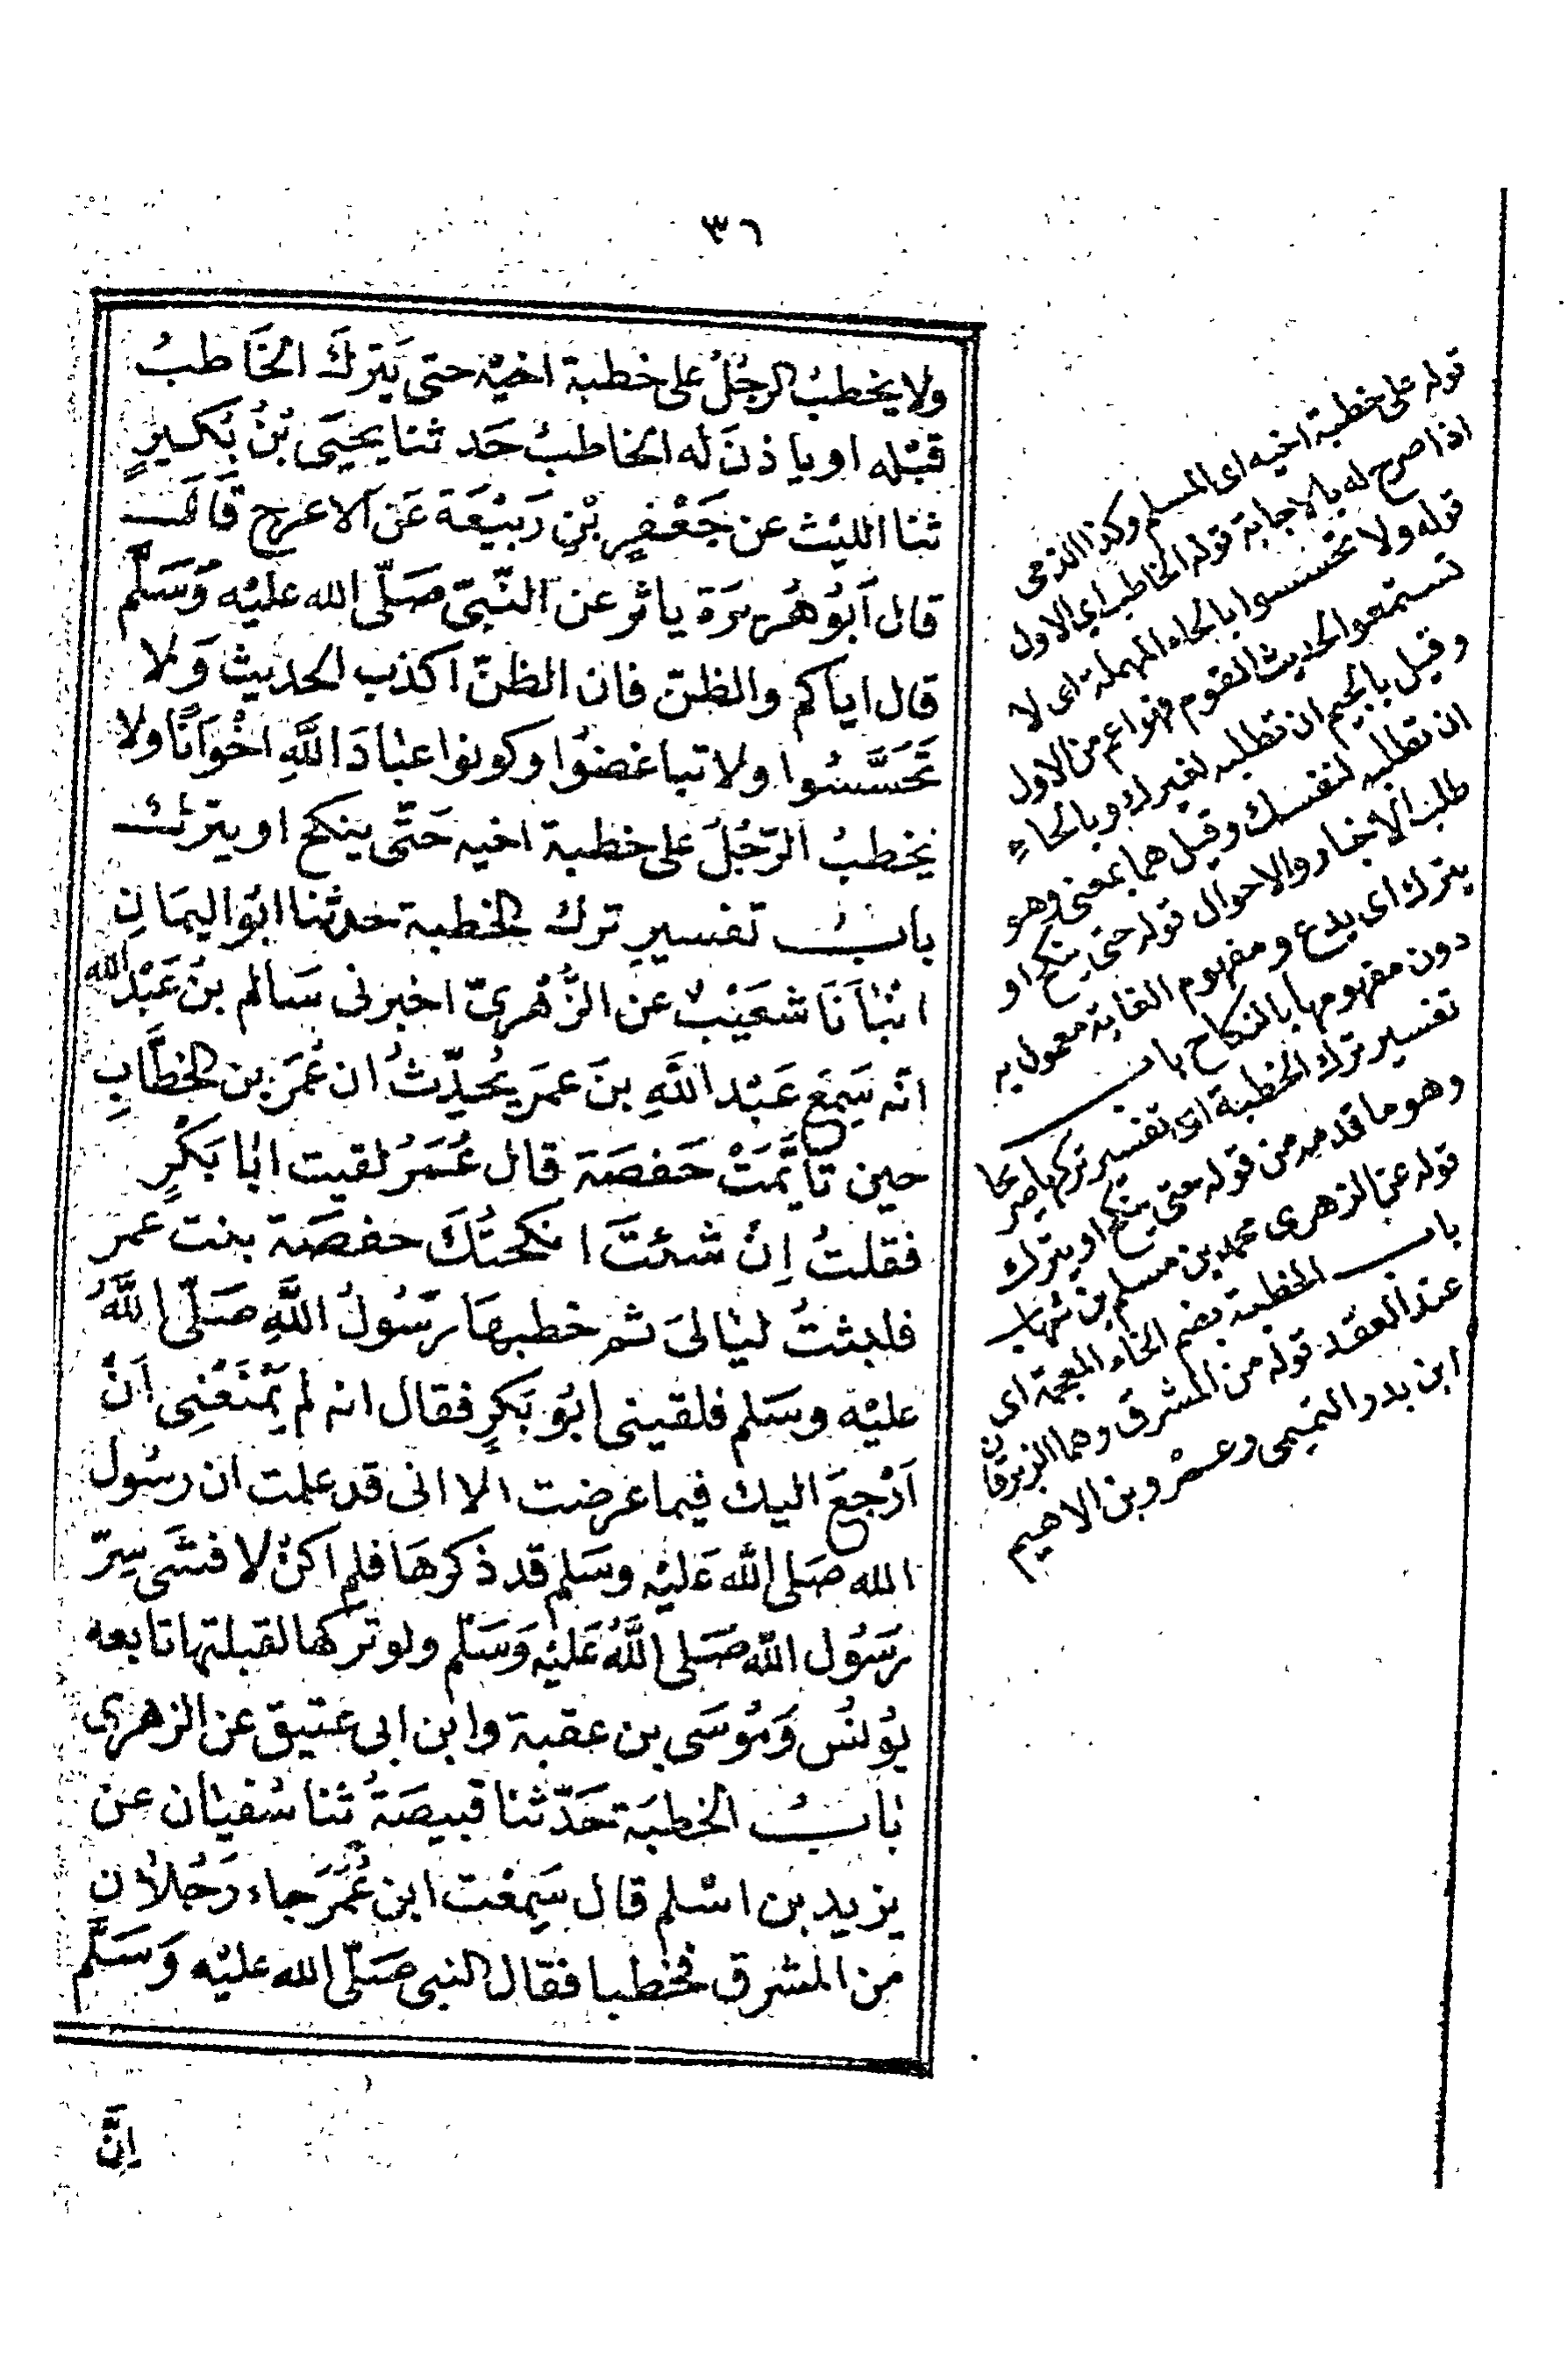 ٣٦
ولا يخطبُ الرجُلُ على خطبة اخيْه حتى يَترك الخَاطبُ
قبْله او ياذنَ له الخاطبُ حَدثنا يحيَى بْنُ بُكَيرٍ
ثنا الليْث عن جَعْفرٍ بْنِ رَبيْعَة عَن الاعرج قَالَ
قال اَبُوهُريرَة ياثر عن النّبىّ صَلّى الله عليْه وَسَلَّم
قال اياكم والظنّ فان الظنّ اكذب الحديث وَلا
تَحَسَّسُوا ولا تباغضُوا وكونوا عبادَ اللَّهِ اخْوَانًا ولا
يخطبُ الرّجُلُ على خطبة اخيه حَتّى ينكح او يترك
بابُ تفسيرِ ترك الخطبة حدثنا ابُو اليمَانِ
انبْاَنَا شعَيْبٌ عن الزُّهْرىّ اخبرنى سَالم بنُ عَبْد الله
انّه سَمِعَ عَبْد اللَّهِ بنَ عمَر يُحدّثُ ان عُمَر بن الخطَّابِ
حين تَأيَّمَتْ حَفصَة قال عُمَرُ لقيت ابَا بَكْرٍ
فقلتُ اِنْ شئتَ انكحتُكَ حفصَة بنت عمر
فلبثتُ ليَالىَ ثم خطبهَا رَسُولُ اللَّهِ صَلّى اللَّهُ
عليْه وسَلم فلقينى ابُو بَكرٍ فقال انه لم يَمْنَعْنِى اَنْ
اَرْجعَ اليك فيما عرضت الا انى قد علمت ان رسُول
الله صَلى الله عَليْه وسَلم قد ذكرهَا فلم اكنْ لافشَى سِرّ
رَسُول الله صَلى اللَّهُ عَليْه وَسَلّم ولو تركها لقبلتها تابعه
يُونسُ وَمُوسَى بن عقبة وابن ابى عتيق عن الزهرى
بَابُ الخطبَة حَدّثنا قبيصَةُ ثنا سُفيَان عن
يزيد بن اسْلم قال سَمِعْت ابن عُمَرَ جاء رَجُلَانِ
من المشرق فخطبا فقال النبى صَلّى الله عليْه وَسَلَّم
اِنَّ
قوله على خطبة اخيه اى المسلم وكذا الذمى
اذا صرح له بالاجابة قوله الخاطب اى الاول
قوله ولا تحسسوا بالحاء المهملة اى لا
تستمعوا الحديث القوم فهو اعم من الاول
وقيل بالجيم ان تطلبه لغيرك وبالحاء
ان تطلبه لنفسك وقيل هما بمعنى وهو
طلب الاخبار والاحوال قوله حتى ينكح او
يترك اى يدع ومفهوم الغاية معمول به
دون مفهومها بالنكاح باب
تفسير ترك الخطبة اى تفسير تركها صريحا
وهو ما قدمه من قوله حتى ينكح او يترك
قوله عن الزهرى محمد بن مسلم بن شهاب
باب الخطبة بضم الخاء المعجمة اى
عند العقد قوله من المشرق وهما الزبرقان
ابن بدر التميمى وعمرو بن الاهيم